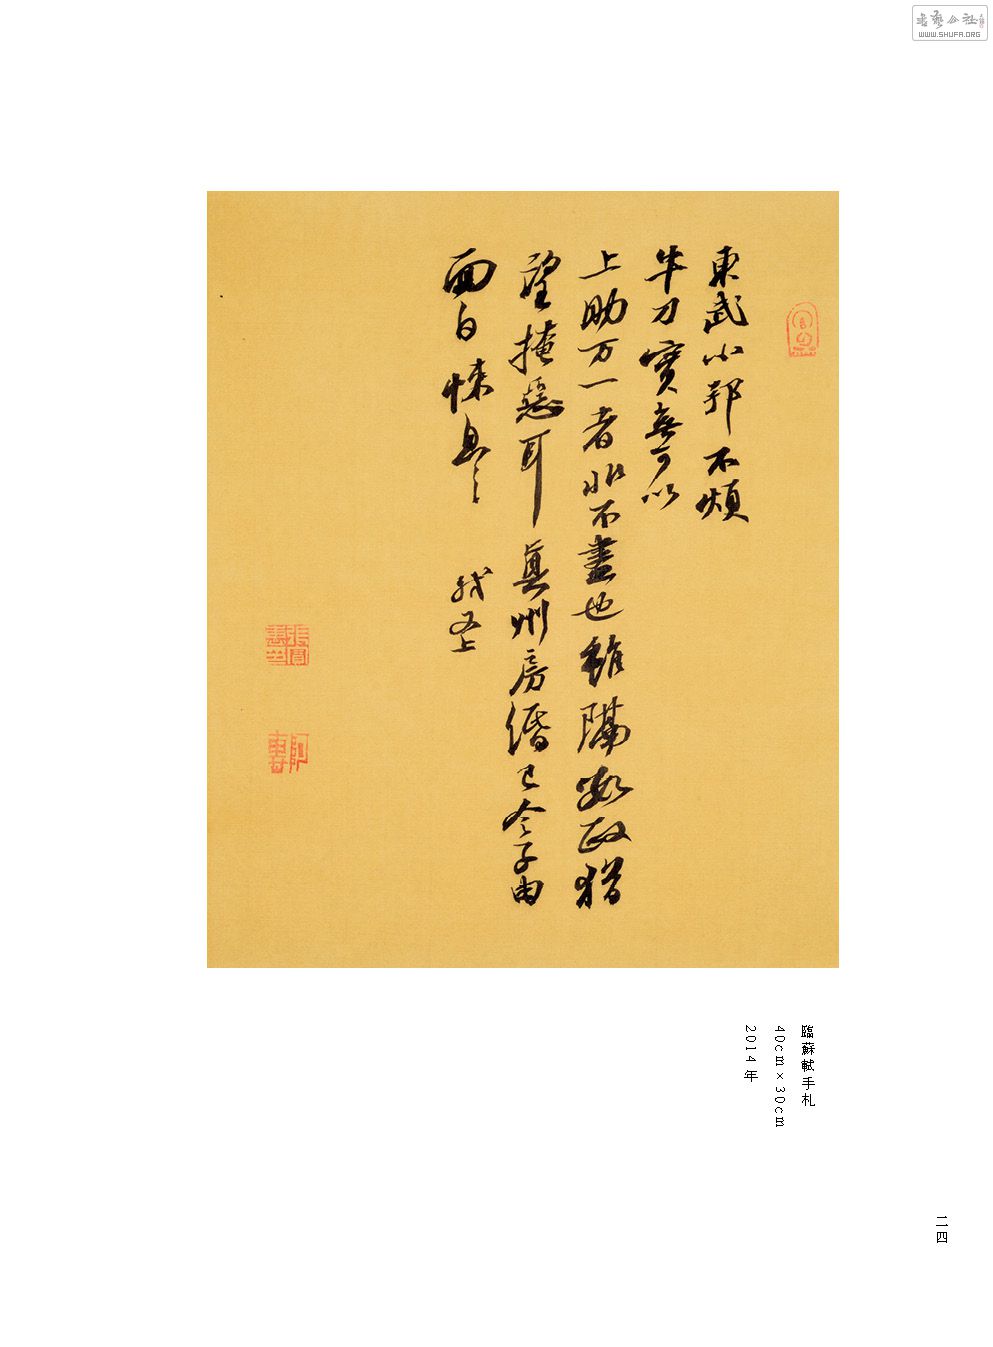 書藝公社
WWW.SHUFA.ORG
東武小邦不煩
牛刀實無可以
上助万一者非不盡也雖隔數政猶
望掩惡耳真州房緡已令子由
面白悚息〻 軾又上
臨蘇軾手札
40cm×30cm
2014年
二四